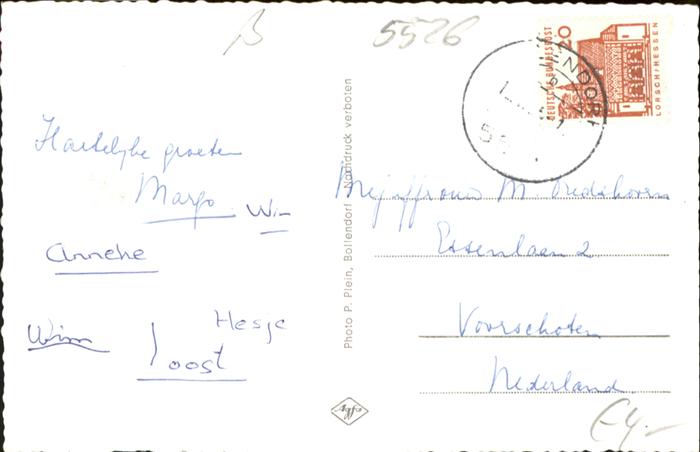 B
5526
Hartelijke groeten
Margo
Win
Anneke
Wim
Joost
Hesje
Photo P. Plein, Bollendorf - Nachdruck verboten
Agfa
DEUTSCHE BUNDESPOST
20
LORSCH/HESSEN
Mejuffrouw M.
Essenlaan 2
Voorschoten
Nederland
€4,-